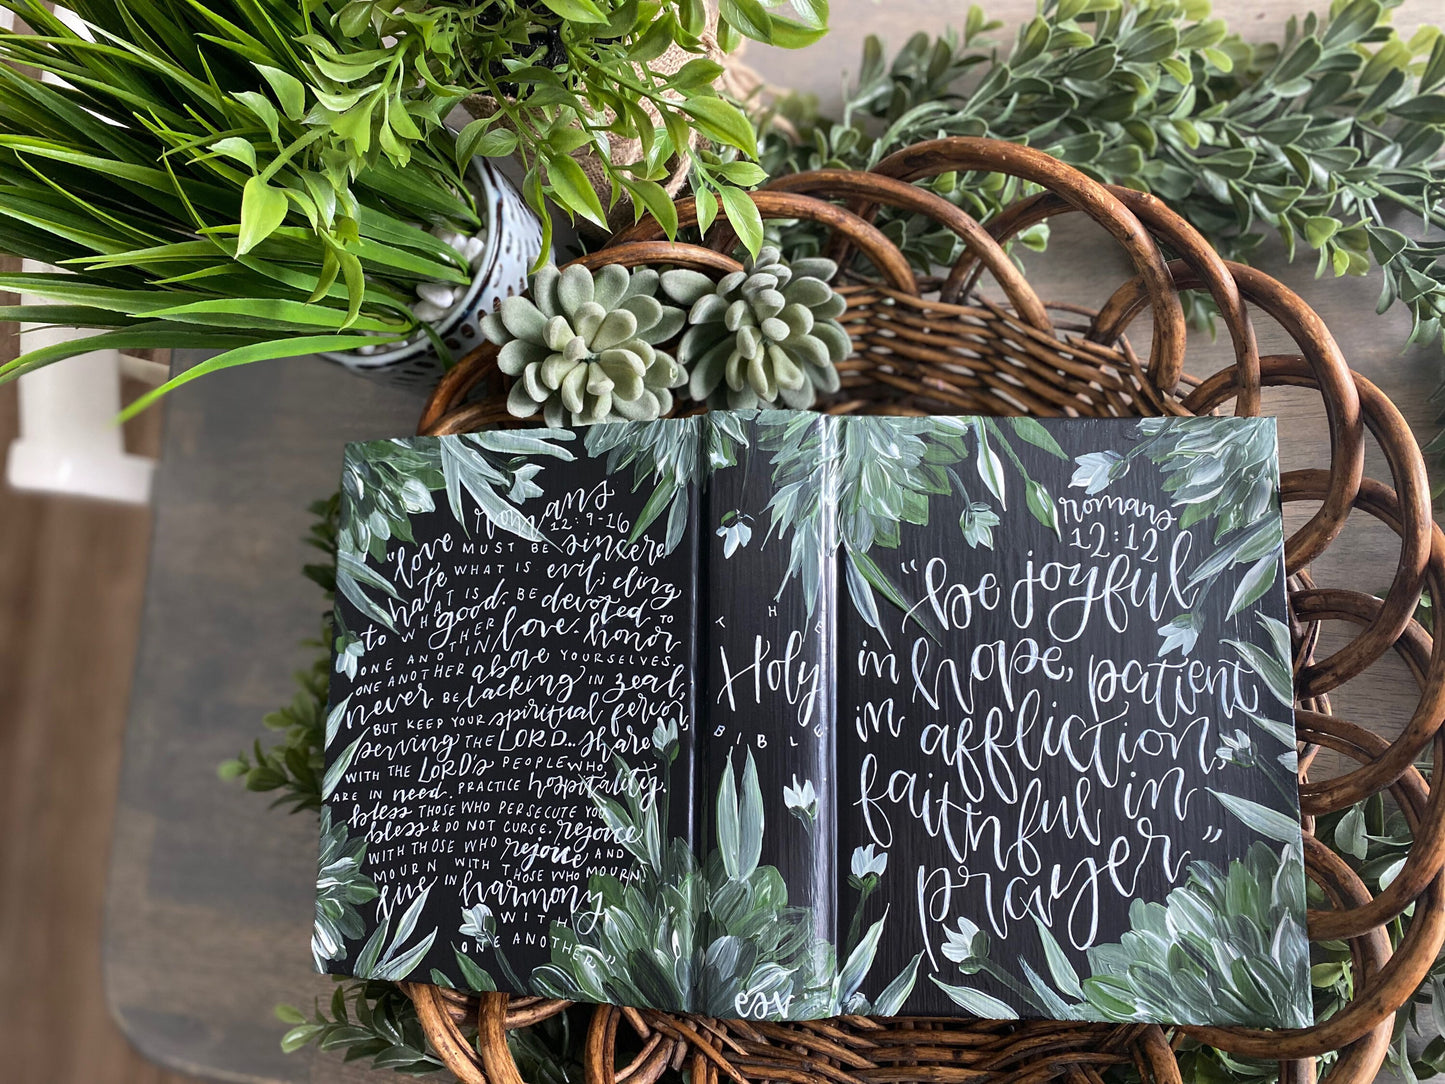 romans
12:9-16
"love MUST BE sincere.
hate WHAT IS evil; cling
to WHAT IS good. BE devoted TO
ONE ANOTHER IN love. honor
ONE ANOTHER above YOURSELVES.
never BE lacking IN zeal,
BUT KEEP YOUR spiritual fervor,
serving THE LORD... share
WITH THE LORD'S PEOPLE WHO
ARE IN need. PRACTICE hospitality.
bless THOSE WHO PERSECUTE YOU
bless & DO NOT CURSE. rejoice
WITH THOSE WHO rejoice AND
MOURN WITH THOSE WHO MOURN.
live IN harmony
WITH
ONE ANOTHER"
THE
Holy
BIBLE
esv
romans
12:12
"be joyful
in hope, patient
in affliction,
faithful in
prayer"